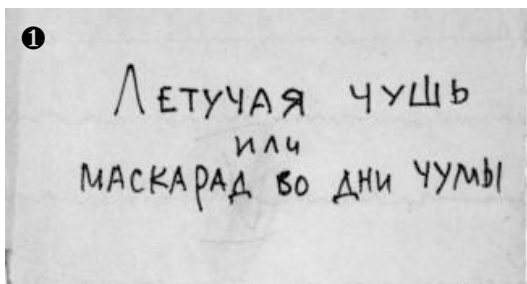 ❶
ЛЕТУЧАЯ ЧУШЬ
или
МАСКАРАД ВО ДНИ ЧУМЫ